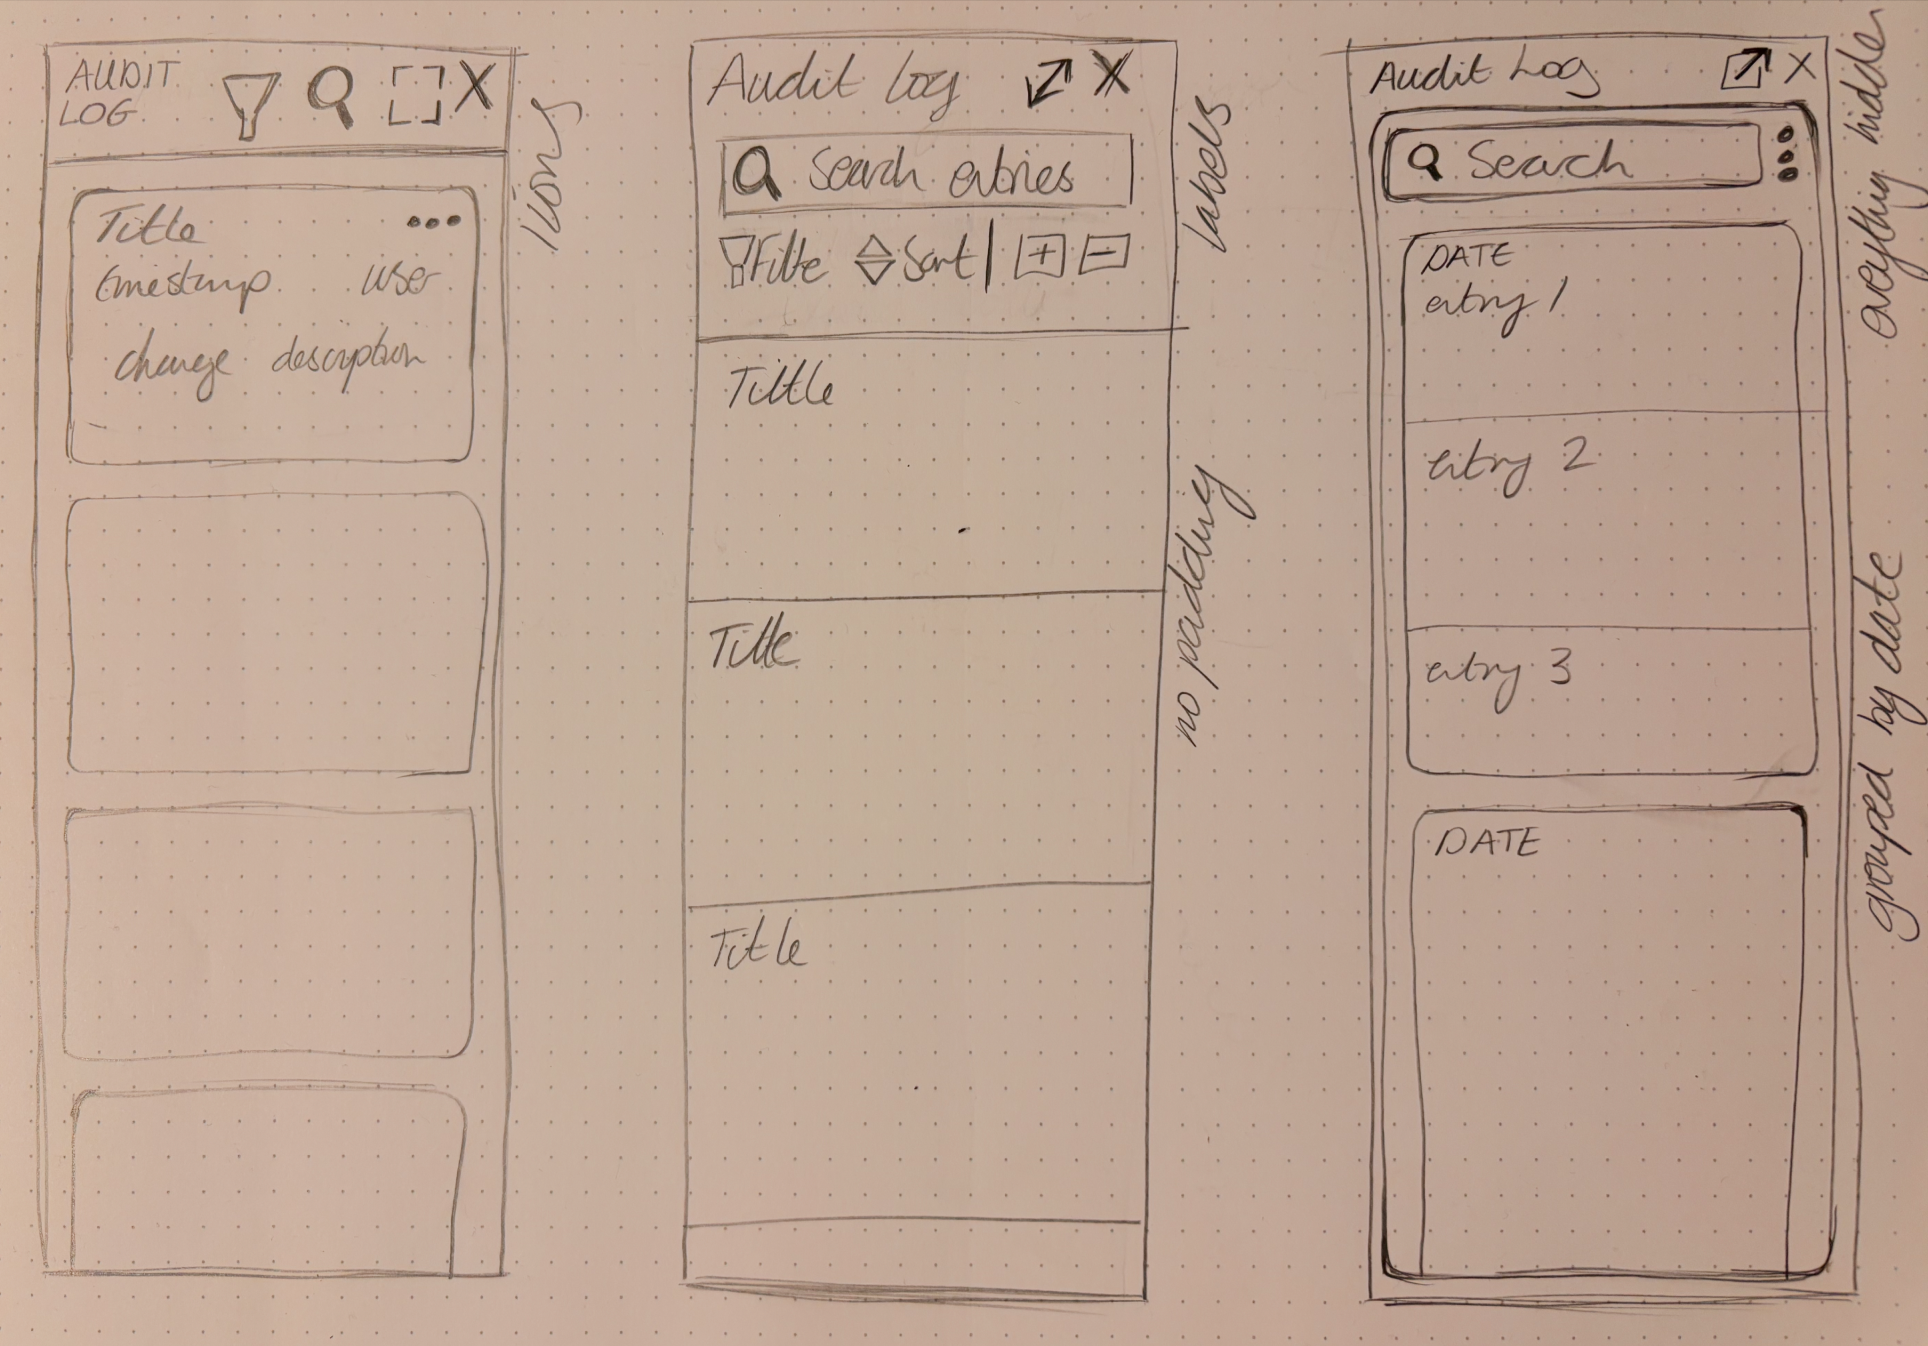 AUDIT
LOG
Title
timestamp user
change description
icons
Audit Log
Search entries
Filte Sort
Title
Title
Title
labels
no padding
Audit Log
Search
DATE
entry 1
entry 2
entry 3
DATE
everything hidden
grouped by date